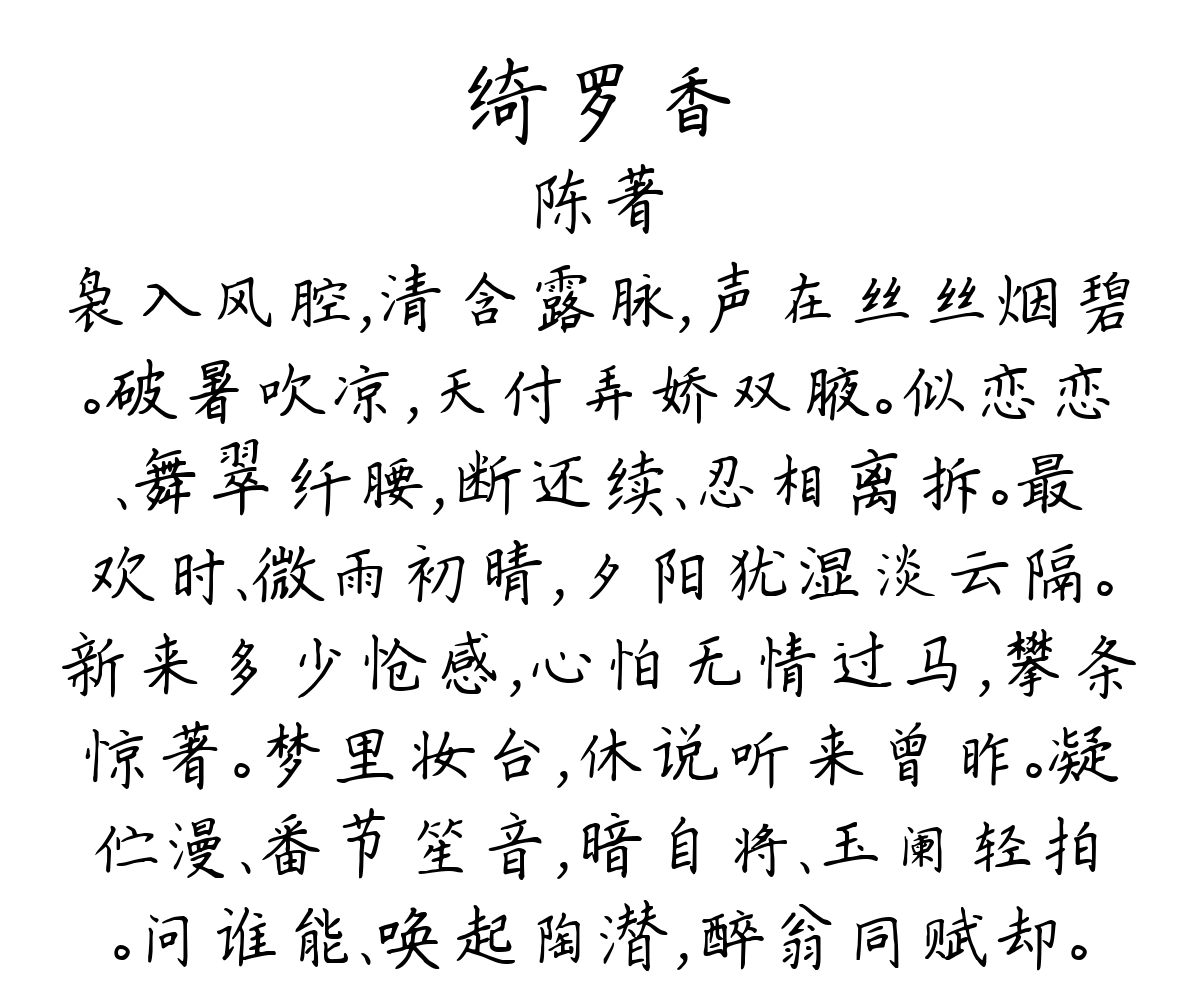 绮罗香
陈著
袅入风腔,清含露脉,声在丝丝烟碧
。破暑吹凉,天付弄娇双腋。似恋恋
、舞翠纤腰,断还续、忍相离拆。最
欢时、微雨初晴,夕阳犹湿淡云隔。
新来多少怆感,心怕无情过马,攀条
惊著。梦里妆台,休说听来曾昨。凝
伫漫、番节笙音,暗自将、玉阑轻拍
。问谁能、唤起陶潜,醉翁同赋却。